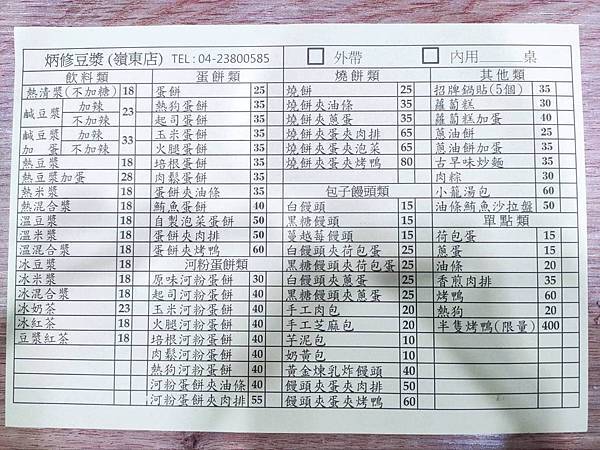 炳修豆漿(嶺東店) TEL:04-23800585 外帶 內用 桌
飲料類
熱清漿(不加糖) 18
鹹豆漿 加辣 不加辣 23
鹹豆漿加蛋 加辣 不加辣 33
熱豆漿 18
熱豆漿加蛋 28
熱米漿 18
熱混合漿 18
溫豆漿 18
溫米漿 18
溫混合漿 18
冰豆漿 18
冰米漿 18
冰混合漿 18
冰奶茶 23
冰紅茶 18
豆漿紅茶 18
蛋餅類
蛋餅 25
熱狗蛋餅 35
起司蛋餅 35
玉米蛋餅 35
火腿蛋餅 35
培根蛋餅 35
肉鬆蛋餅 35
蛋餅夾油條 35
鮪魚蛋餅 40
自製泡菜蛋餅 50
蛋餅夾肉排 50
蛋餅夾烤鴨 60
河粉蛋餅類
原味河粉蛋餅 30
起司河粉蛋餅 40
玉米河粉蛋餅 40
火腿河粉蛋餅 40
培根河粉蛋餅 40
肉鬆河粉蛋餅 40
熱狗河粉蛋餅 40
河粉蛋餅夾油條 40
河粉蛋餅夾肉排 55
燒餅類
燒餅 25
燒餅夾油條 35
燒餅夾蔥蛋 35
燒餅夾蛋夾肉排 65
燒餅夾蛋夾泡菜 65
燒餅夾蛋夾烤鴨 80
包子饅頭類
白饅頭 15
黑糖饅頭 15
蔓越莓饅頭 15
白饅頭夾荷包蛋 25
黑糖饅頭夾荷包蛋 25
白饅頭夾蔥蛋 25
黑糖饅頭夾蔥蛋 25
手工肉包 20
手工芝麻包 20
芋泥包 10
奶黃包 10
黃金煉乳炸饅頭 40
饅頭夾蛋夾肉排 50
饅頭夾蛋夾烤鴨 60
其他類
招牌鍋貼(5個) 35
蘿蔔糕 30
蘿蔔糕加蛋 40
蔥油餅 25
蔥油餅加蛋 35
古早味炒麵 35
肉粽 30
小籠湯包 60
油條鮪魚沙拉盤 50
單點類
荷包蛋 15
蔥蛋 15
油條 20
香煎肉排 35
烤鴨 60
熱狗 20
半隻烤鴨(限量) 400